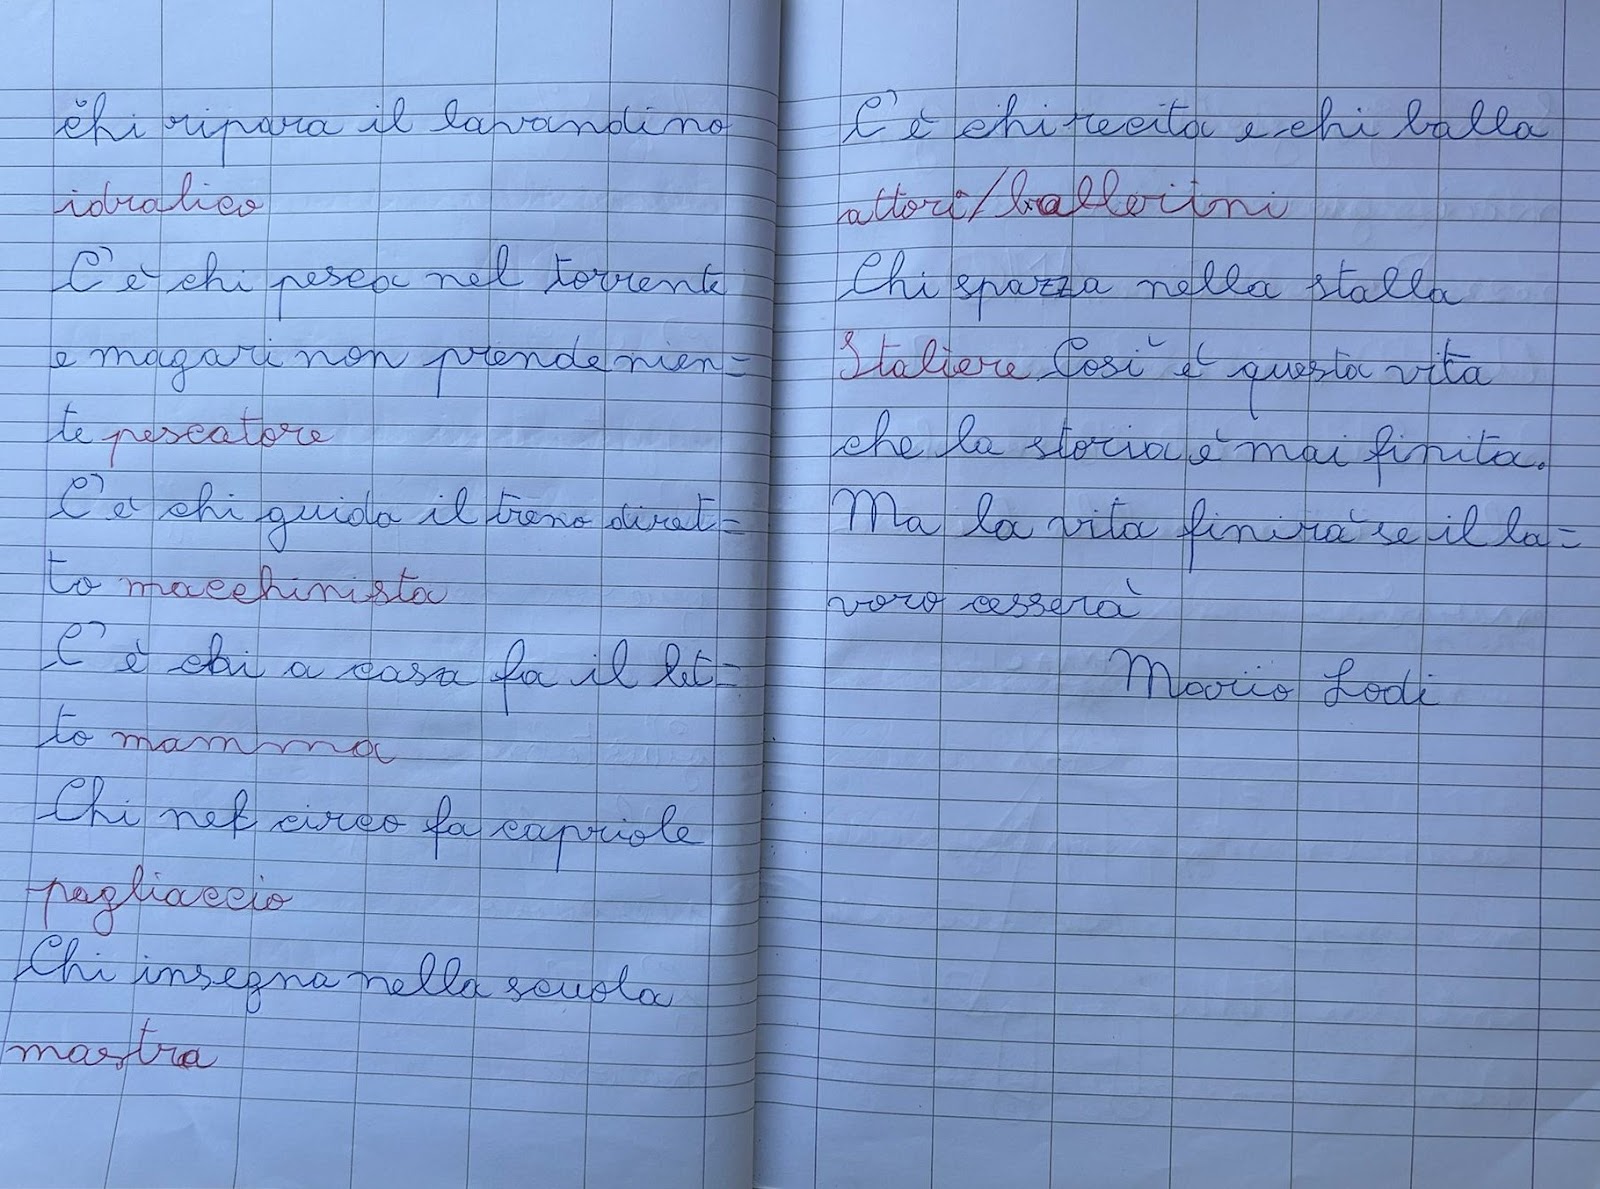 chi ripara il lavandino
idralico
C'è chi pesca nel torrente
e magari non prende nien=
te pescatore
C'è chi guida il treno diret=
to macchinista
C'è chi a casa fa il let=
to mamma
Chi nel circo fa capriole
pagliaccio
Chi insegna nella scuola
mastra
C'è chi recita e chi balla
attori/ballerini
Chi spazza nella stalla
Staliere Così è questa vita
che la storia è mai finita.
Ma la vita finirà se il la=
voro cesserà
Mario Lodi